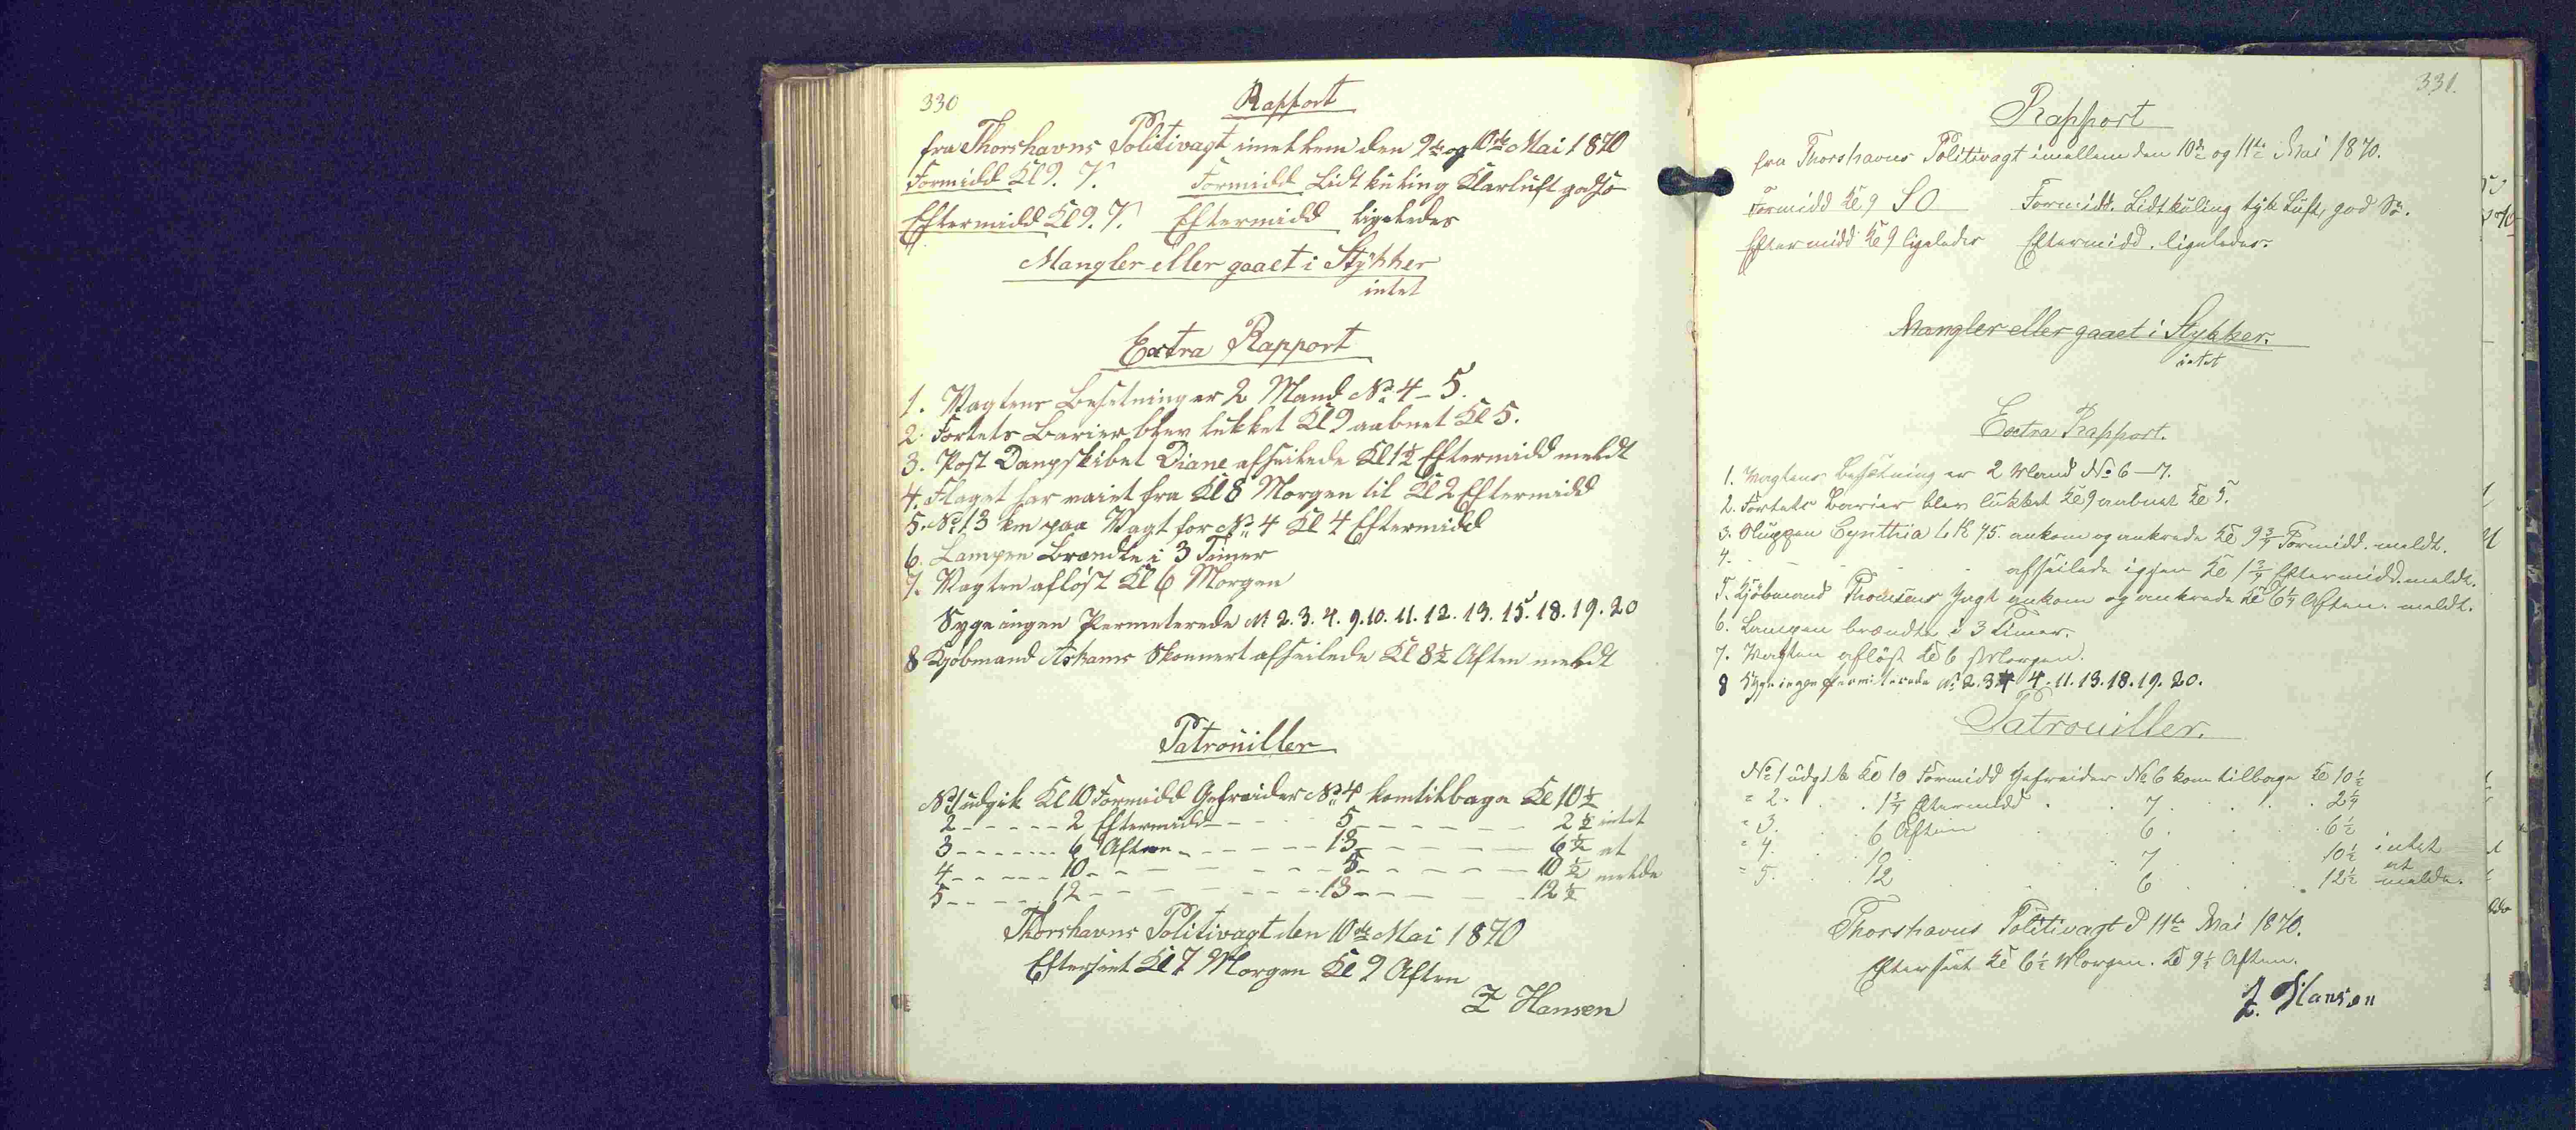 330
Rapport
fra Thorshavns Politivagt imellem den 9de og 10de Mai 1870
Formidd Kl 9. V. Formidd Lidt kuling Klarluft god Sö
Eftermidd Kl 9. V. Eftermidd ligeledes
Mangler eller gaaet i Stykker
intet
Extra Rapport
1. Vagtens Besetning er 2 Mand No 4-5.
2. Fortets Barier blev lukket Kl 9 aabnet Kl 5.
3. Post Dampskibet Diane afseilede Kl 1½ Eftermidd meldt
4. Flaget har vaiet fra Kl 8 Morgen til Kl 2 Eftermidd
5. No 13 km paa Vagt for No 4 Kl 4 Eftermidd
6. Lampen Brændte i 3 Timer
7. Vagten aflöst Kl 6 Morgen
Syge ingen Permeterede No 2. 3. 4. 9. 10. 11. 12. 13. 15. 18. 19. 20
8 Kjøbmand Skonnert afseilede Kl 8½ Aften meldt
Patrouiller
No 1 udgik Kl 10 Formidd Gefreider No 4 kom tilbage Kl 10½
2 - - - - - 2 Eftermidd - - - 5 - - - - - 2½ intet
3 - - - - - 6 Aften - - - - - 13 - - - - - 6½ at
4 - - - - - 10 - - - - - 5 - - - - - 10½ melde
5 - - - - - 12 - - - - - 13 - - - - - 12½
Thorshavns Politivagt den 10de Mai 1870
Efterseet Kl 7 Morgen Kl 9 Aften
Z Hansen
331.
Rapport
fra Thorshavns Politivagt imellem den 10de og 11te Mai 1870.
Formidd Kl 9 SO Formidd. Lidt kuling tyk Luft, god Sö.
Eftermidd Kl 9 ligeledes Eftermidd. ligeledes.
Mangler eller gaaet i Stykker.
intet
Extra Rapport.
1. Vagtens Besætning er 2 Mand No 6-7.
2. Fortets Barier blev lukket Kl 9 aabnet Kl 5.
3. Sluppen Cynthia LK 45. ankom og ankrede Kl 9¾ Formidd. meldt.
4. - - - afseilede igjen Kl 1¾ Eftermidd. meldt.
5. Kjöbmand Thomsens Jagt ankom og ankrede Kl 6¼ Aften. meldt.
6. Lampen brændte i 3 Timer.
7. Vagten aflöst Kl 6 Morgen.
8 Syge ingen Permiterede No 2. 3. 4. 11. 13. 18. 19. 20.
Patrouiller.
No 1 udgik Kl 10 Formidd Gefreider No 6 kom tilbage Kl 10½
" 2. . . 1¾ Eftermidd . . 7 . . . . 2¼
" 3. . . 6 Aften . . 6. . . . 6½
" 4. . . 10 . . 7 . . . 10½ intet
at
" 5. . . 12 . . 6 . . . 12½ melde.
Thorshavns Politivagt d 11te Mai 1870.
Efterseet Kl 6½ Morgen. Kl 9½ Aften.
Z. Hansen